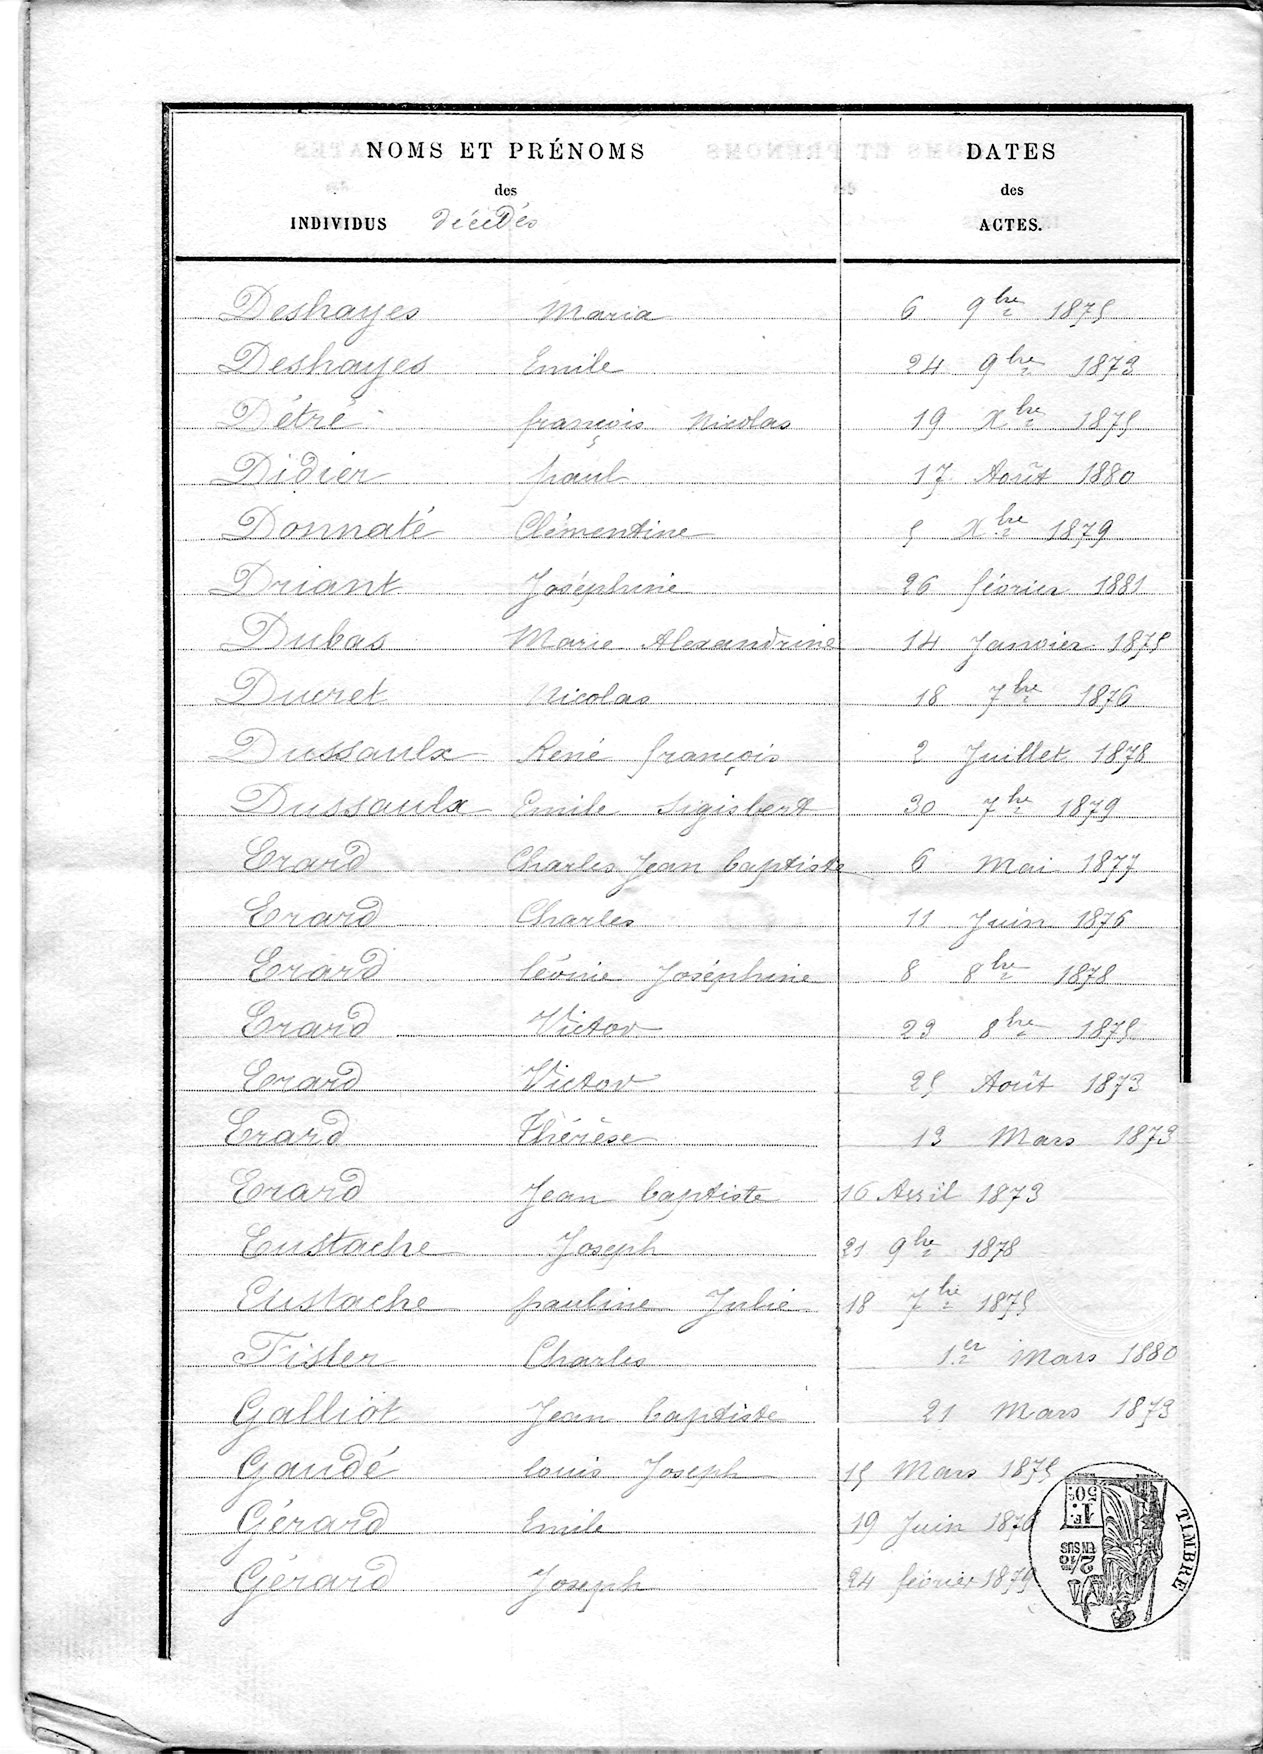 NOMS ET PRÉNOMS DATES
des des
INDIVIDUS Décédés ACTES.
Deshayes Maria 6 9bre 1875
Deshayes Emile 24 9bre 1873
Détré françois Nicolas 19 Xbre 1875
Didier paul 17 Août 1880
Donnaté Clémentine 5 Xbre 1879
Driant Joséphine 26 février 1881
Dubas Marie Alexandrine 14 Janvier 1875
Ducret Nicolas 18 7bre 1876
Dussaulx René françois 2 Juillet 1878
Dussaulx Emile Sigisbert 30 7bre 1879
Erard Charles Jean baptiste 6 Mai 1877
Erard Charles 11 Juin 1876
Erard lévinie Joséphine 8 8bre 1878
Erard Victor 23 8bre 1875
Erard Victor 25 Août 1873
Erard Thérèse 13 Mars 1873
Erard Jean baptiste 16 Avril 1873
Eustache Joseph 21 9bre 1878
Eustache pauline Julie 18 7bre 1875
Fisler Charles 1er Mars 1880
Galliot Jean baptiste 21 Mars 1873
Gaudé louis Joseph 15 Mars 1875
Gérard Emile 19 Juin 1876
Gérard Joseph 24 février 1879
TIMBRE
1F. 50c
2/10mes
EN SUS